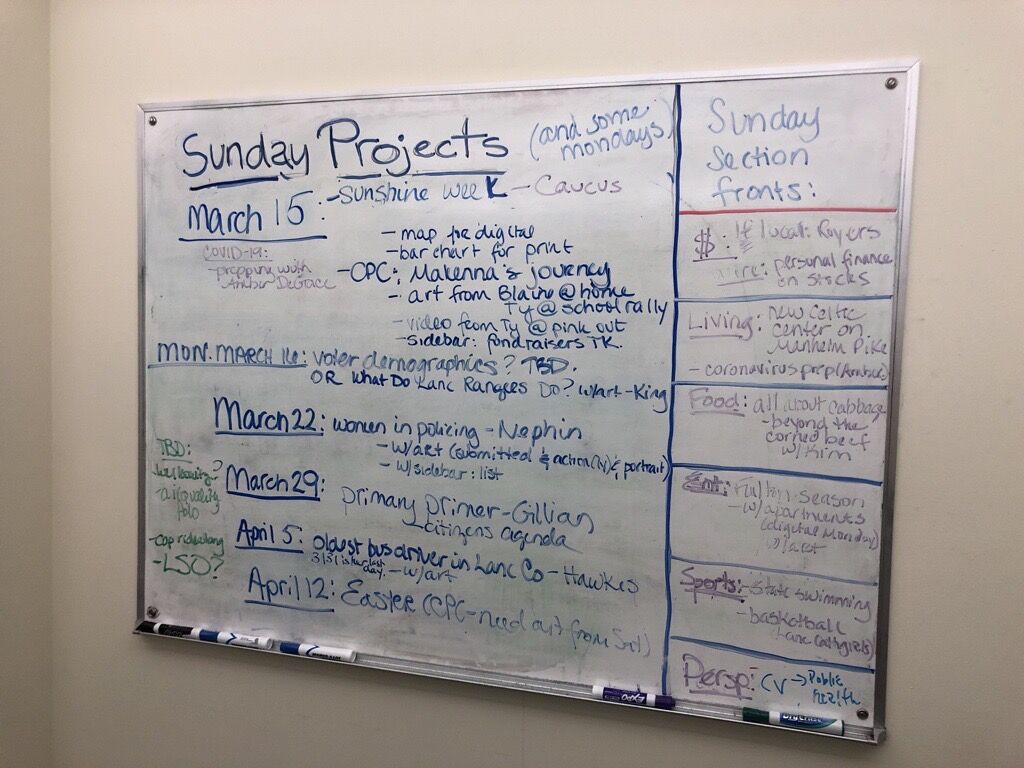 Sunday Projects (and some
mondays)
March 15: - Sunshine Week - Caucus
- map for digital
- bar chart for print
COVID-19:
- prepping with
Amber DeGrace
- CPC: Makenna's journey
- art from Blaine @ home
Ty @ school rally
- video from Ty @ pink out
- sidebar: fundraisers TK.
MON. MARCH 16: voter demographics? TBD.
OR What Do Lanc Rangers Do? w/art - King
March 22: women in policing - Nephin
- w/art (submitted & action (Ty) & portrait)
- w/sidebar: list
March 29: primary primer - Gillian
- citizens agenda
April 5: oldest bus driver in Lanc Co - Hawkes
3/31 is her last
day.
- w/art
April 12: Easter (CPC - need art from
TBD:
- air quality
- cop ridealong
- LSO?
Sunday
Section
fronts:
$: If local: Royers
wire: personal finance
on stocks
Living: new Celtic
center on
Manheim Pike
- coronavirus prep (Amber)
Food: all about cabbage
- beyond the
corned beef
w/Kim
Ent: Fulton season
- w/apartments
(digital Monday)
w/art
Sports: - state swimming
- basketball
Persp: CV → Public
Health
EXPO